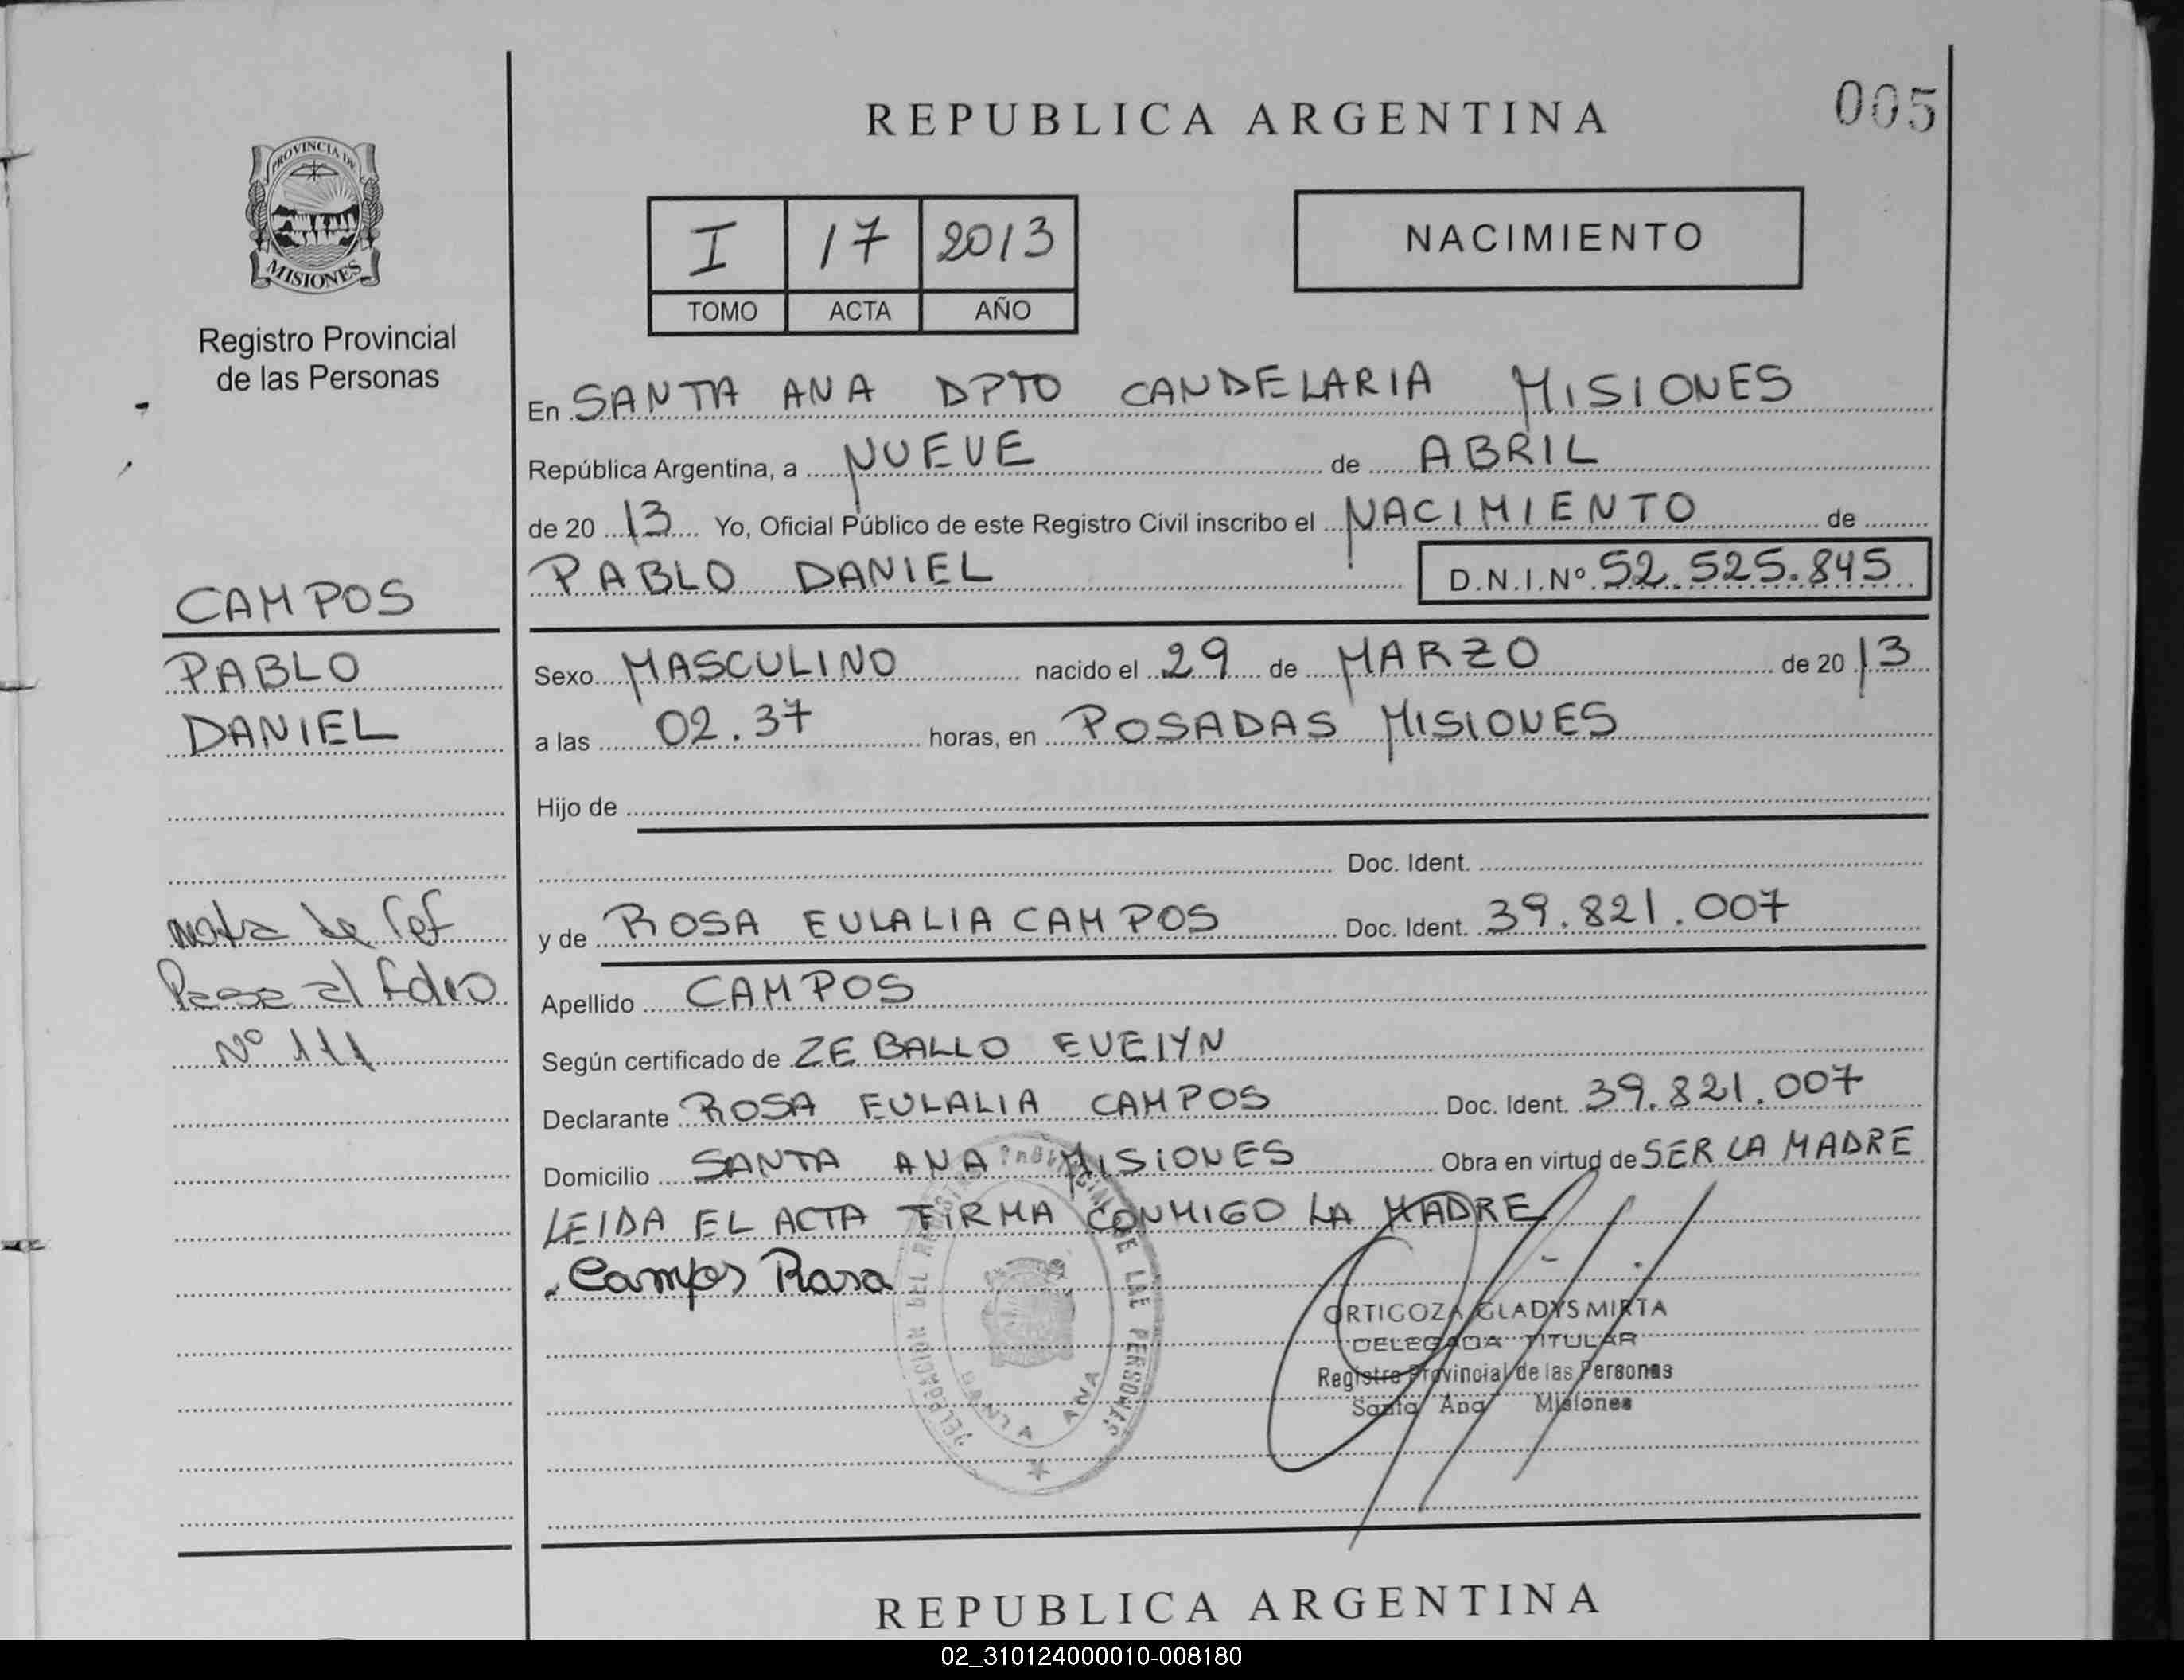 REPUBLICA ARGENTINA
005
PROVINCIA DE
MISIONES
Registro Provincial
de las Personas
I 17 2013
TOMO ACTA AÑO
NACIMIENTO
En SANTA ANA DPTO CANDELARIA MISIONES
República Argentina, a NUEVE de ABRIL
de 20 13 Yo, Oficial Público de este Registro Civil inscribo el NACIMIENTO de
PABLO DANIEL D.N.I.Nº 52.525.845
CAMPOS
PABLO
DANIEL
Sexo MASCULINO nacido el 29 de MARZO de 20 13
a las 02.37 horas, en POSADAS MISIONES
Hijo de
Doc. Ident.
y de ROSA EULALIA CAMPOS Doc. Ident. 39.821.007
nota de ref
Pasa al folio
Nº 111
Apellido CAMPOS
Según certificado de ZEBALLO EVElYN
Declarante ROSA EULALIA CAMPOS Doc. Ident. 39.821.007
Domicilio SANTA ANA MISIONES Obra en virtud de SER LA MADRE
LEIDA EL ACTA FIRMA CONMIGO LA MADRE
Campos Rosa
DELEGACION DEL REGISTRO DE LAS PERSONAS
SANTA ANA
ORTIGOZA GLADYS MIRTA
DELEGADA TITULAR
Registro Provincial de las Personas
Santa Ana Misiones
REPUBLICA ARGENTINA
02_310124000010-008180